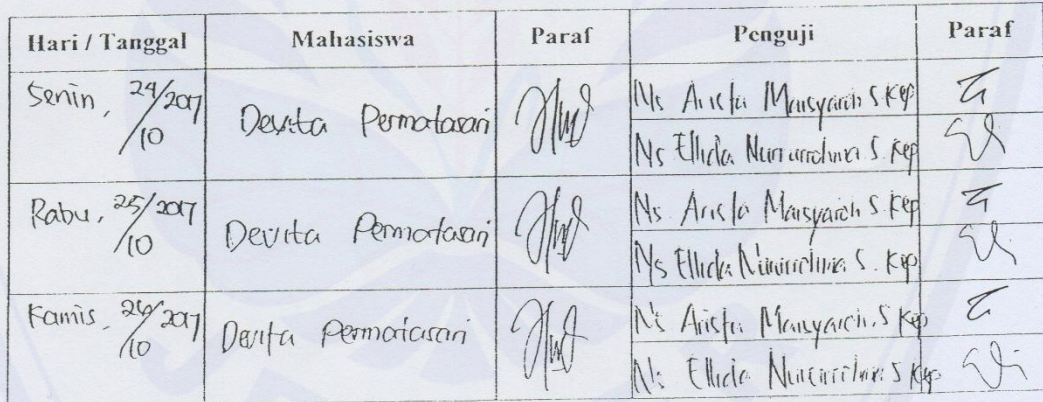 Hari / Tanggal Mahasiswa Paraf Penguji Paraf
Senin, 24/10 2017 Devita Permatasari Ns Arista Maisyaroh S.Kep
Ns Ellida S.Kep
Rabu, 25/10 2017 Devita Permatasari Ns. Arista Maisyaroh S.Kep
Ns Ellida S.Kep
Kamis, 26/10 2017 Devita Permatasari Ns Arista Maisyaroh, S Kep
Ns Ellida S Kep